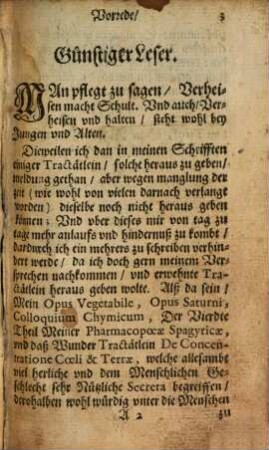 Vorrede/ 3
Günstiger Leser.
MAn pflegt zu sagen/ Verhei-
sen macht Schult. Vnd auch/ Ver-
heisen vnd halten/ steht wohl bey
Jungen vnd Alten.
Dieweilen ich dan in meinen Schrifften
einiger Tractätlein/ solche heraus zu geben/
meldung gethan/ aber wegen manglung der
zeit (wie wohl von vielen darnach verlangt
worden) dieselbe noch nicht heraus geben
können; Vnd vber dieses mir von tag zu
tage mehr anlaufs vnd hindernuß zu kombt/
dardurch ich ein mehrers zu schreiben verhin-
dert werde/ da ich doch gern meinem Ver-
sprechen nachkommen/ vnd erwehnte Tra-
ctätlein heraus geben wolte. Alß da sein/
Mein Opus Vegetabile, Opus Saturni,
Colloquium Chymicum, Der Vierdte
Theil Meiner Pharmacopœæ Spagyricæ,
vnd daß Wunder Tractätlein De Concen-
tratione Cœli & Terræ, welche allesambt
viel herliche vnd dem Menschlichen Ge-
schlecht sehr Nützliche Secreta begreiffen/
derohalben wohl würdig vnter die Menschen
A 2 zu